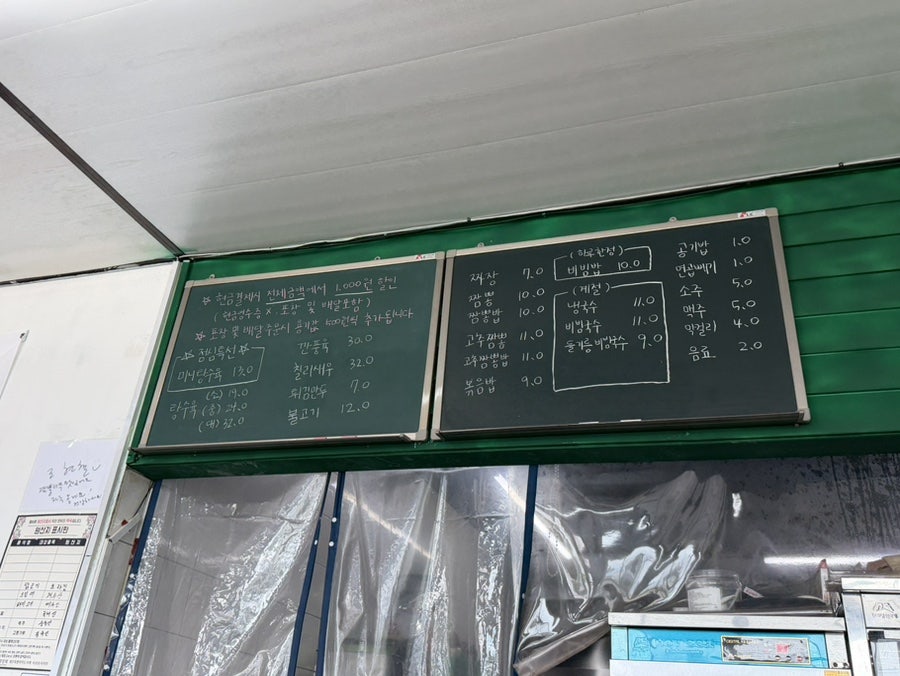 ☆ 현금결제시 전체금액에서 1.000원 할인
(현금영수증 X, 포장 및 배달포함)
☆ 포장 및 배달주문시 용기값 500원씩 추가됩니다
☆점심특선☆
미니탕수육 15.0
탕수육 (소) 19.0
(중) 24.0
(대) 32.0
깐풍육 30.0
칠리새우 32.0
튀김만두 7.0
불고기 12.0
짜장 7.0
짬뽕 10.0
짬뽕밥 10.0
고추짬뽕 11.0
고추짬뽕밥 11.0
볶음밥 9.0
(하루한정)
비빔밥 10.0
(계절)
냉국수 11.0
비빔국수 11.0
들기름 비빔국수 9.0
공기밥 1.0
면곱빼기 1.0
소주 5.0
맥주 5.0
막걸리 4.0
음료 2.0
원산지 표시판